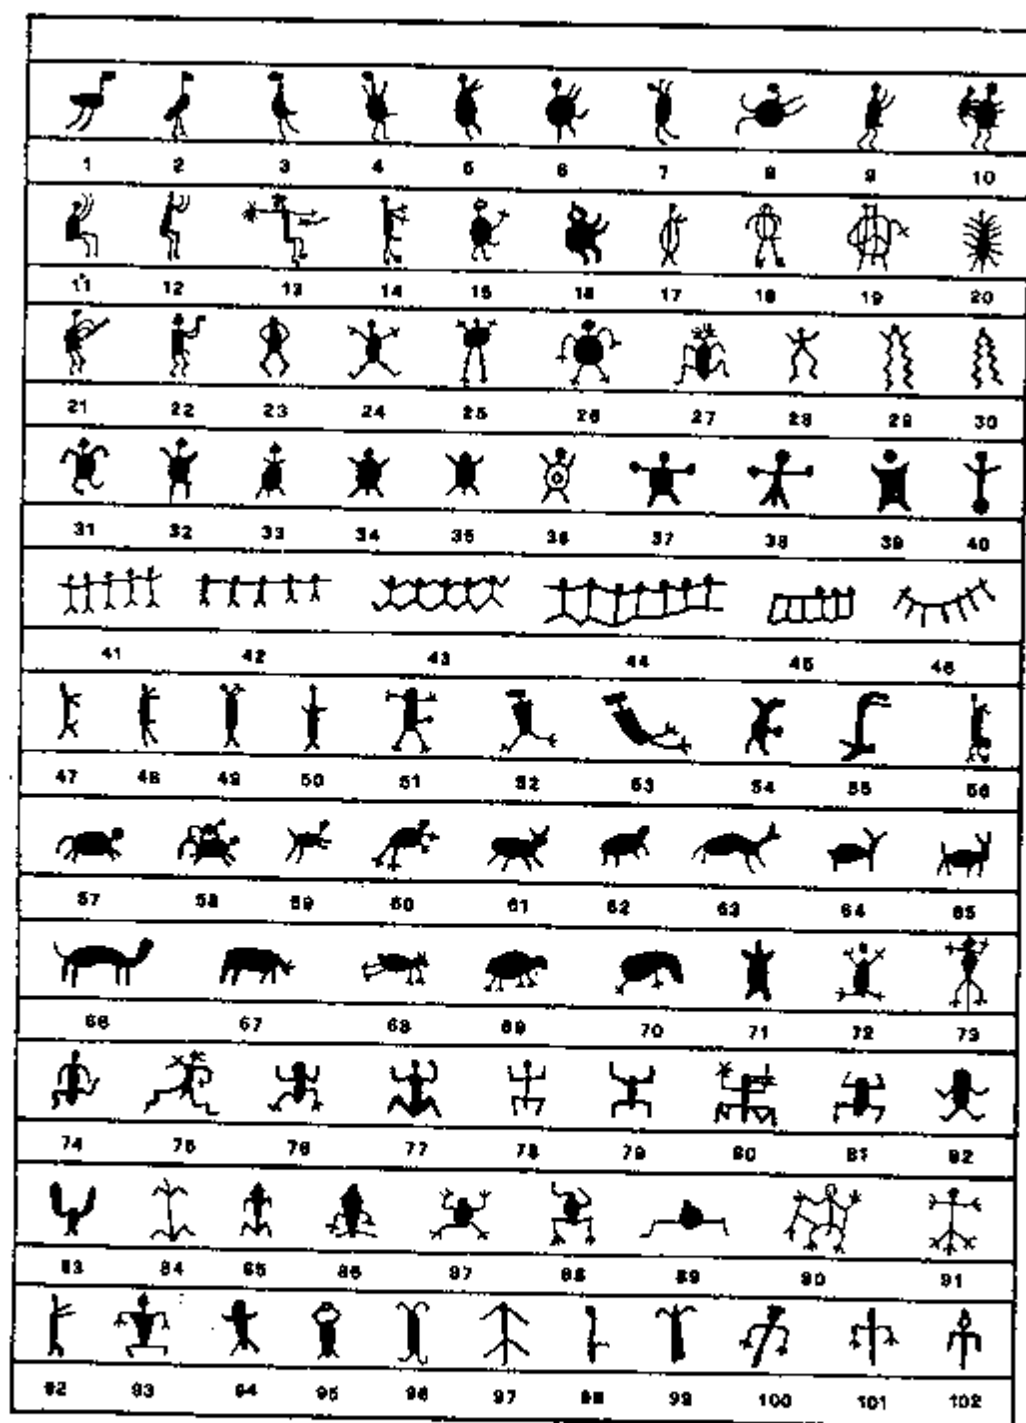 1 2 3 4 5 6 7 8 9 10
11 12 13 14 15 16 17 18 19 20
21 22 23 24 25 26 27 28 29 30
31 32 33 34 35 36 37 38 39 40
41 42 43 44 45 46
47 48 49 50 51 52 53 54 55 56
57 58 59 60 61 62 63 64 65
66 67 68 69 70 71 72 73
74 75 76 77 78 79 80 81 82
83 84 85 86 87 88 89 90 91
92 93 94 95 96 97 98 99 100 101 102